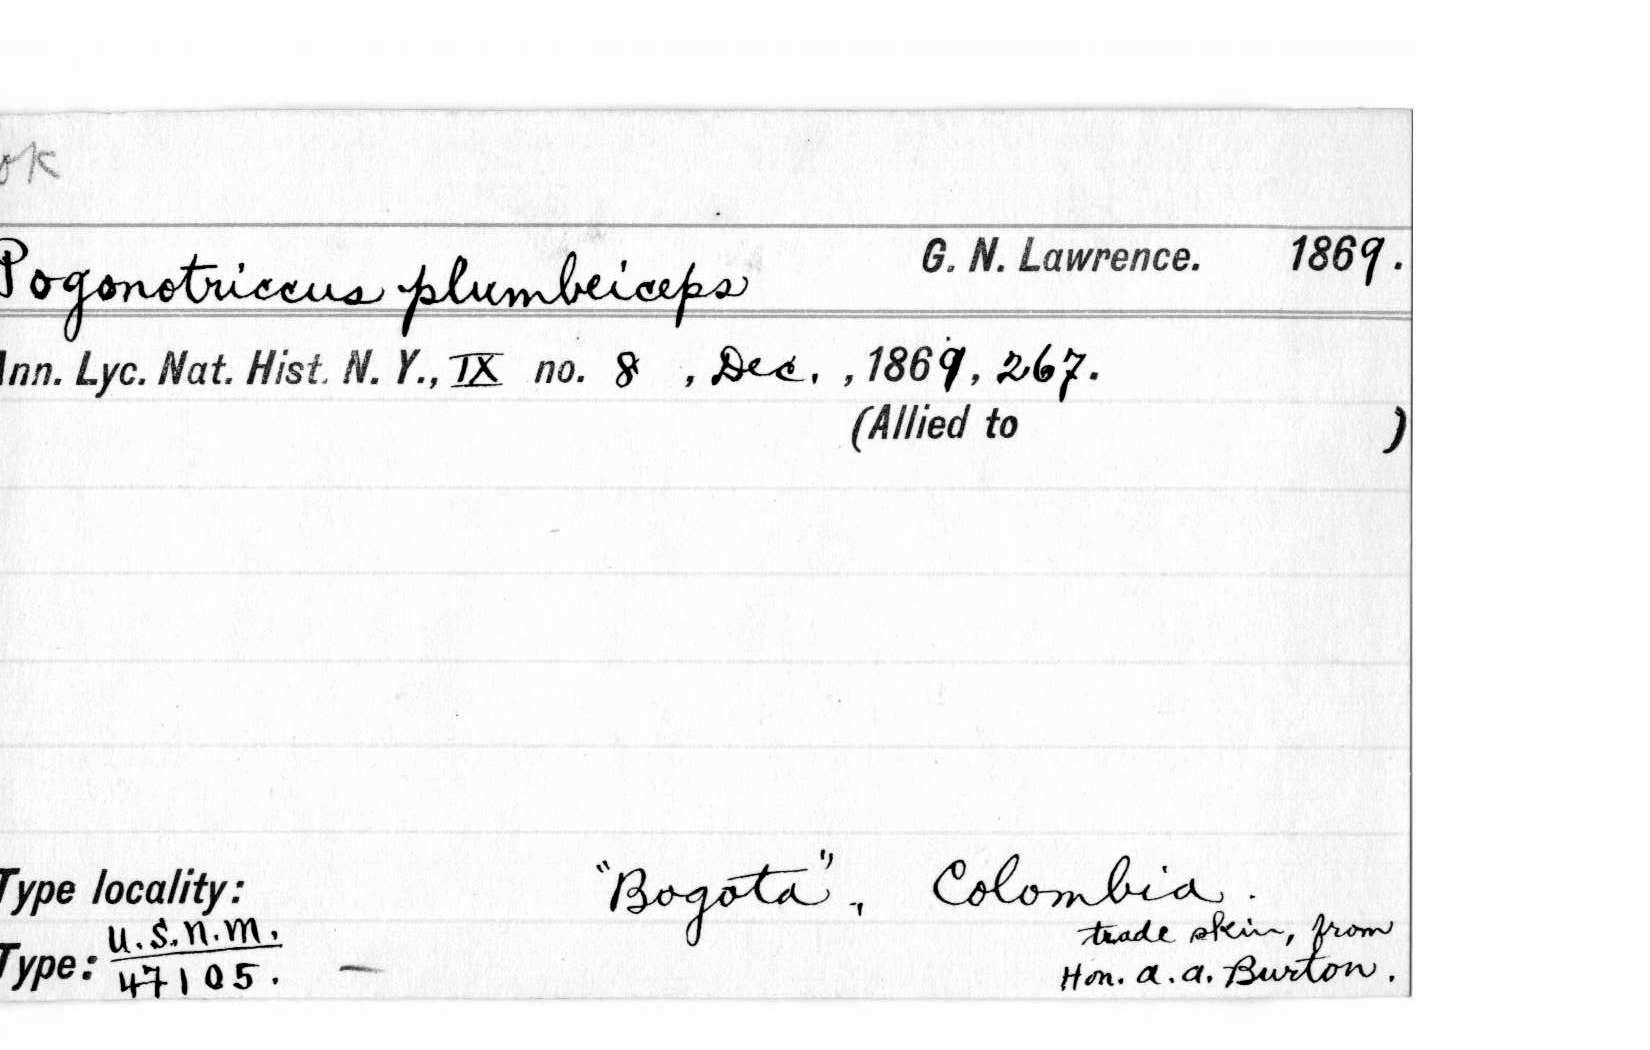 ok
Pogonotriccus plumbeiceps G. N. Lawrence. 1869.
Ann. Lyc. Nat. Hist. N. Y., IX no. 8 , Dec. , 1869, 267.
(Allied to )
Type locality: "Bogota", Colombia.
Type: U.S.N.M. 47105. — trade skin, from
Hon. A. A. Burton.